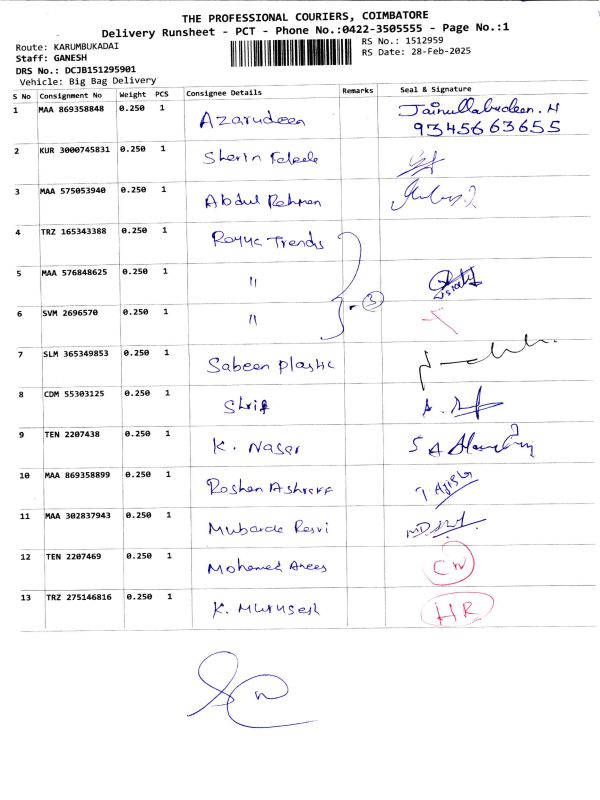 THE PROFESSIONAL COURIERS, COIMBATORE
Delivery Runsheet - PCT - Phone No.:0422-3505555 - Page No.:1
Route: KARUMBUKADAI
RS No.: 1512959
Staff: GANESH
RS Date: 28-Feb-2025
DRS No.: DCJB151295901
Vehicle: Big Bag Delivery
S No Consignment No Weight PCS Consignee Details Remarks Seal & Signature
1 MAA 869358848 0.250 1 Azarudeen Jainullabudeen. N
9345663655
2 KUR 3000745831 0.250 1 Sherin
3 MAA 575053940 0.250 1 Abdul Rehman
4 TRZ 165343388 0.250 1 Trends
5 MAA 576848625 0.250 1 "
3
6 SVM 2696570 0.250 1 "
7 SLM 365349853 0.250 1 Sabeen Plastic
8 CDM 55303125 0.250 1
9 TEN 2207438 0.250 1 K. Nasar
10 MAA 869358899 0.250 1 Roshan
11 MAA 302837943 0.250 1
12 TEN 2207469 0.250 1 Mohamed Anees CN
13 TRZ 275146816 0.250 1 K. Murugesh HR